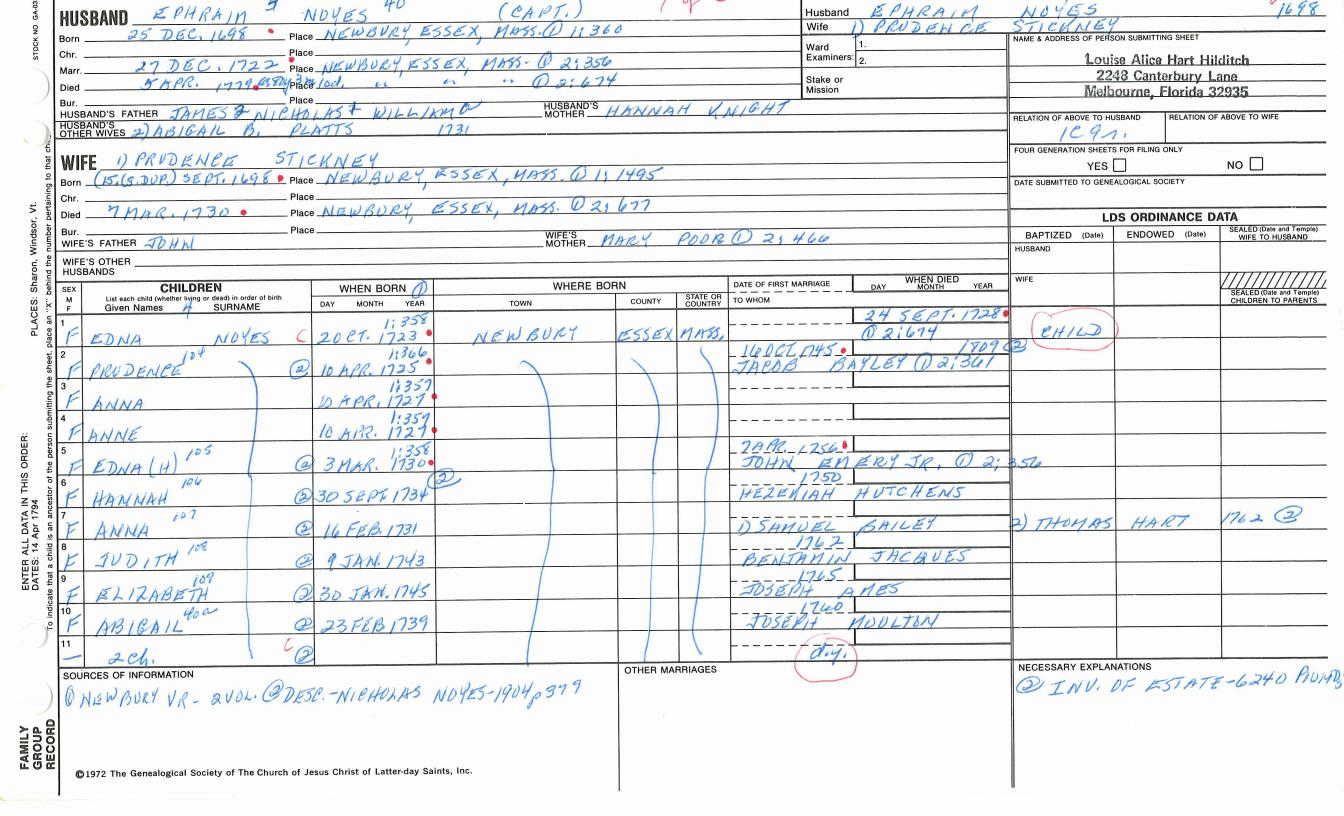 HUSBAND EPHRAIM NOYES 40 (CAPT.)
Husband EPHRAIM NOYES 1698
Wife 1) PRUDENCE STICKNEY
Born 25 DEC. 1698 Place NEWBURY, ESSEX, MASS. ① 1:360
Chr. Place
Marr. 27 DEC. 1722 Place NEWBURY, ESSEX, MASS. ① 2:356
Died 5 APR. 1779 Place " " ① 2:674
Bur. Place
HUSBAND'S FATHER JAMES NICHOLAS WILLIAM
HUSBAND'S MOTHER HANNAH KNIGHT
HUSBAND'S OTHER WIVES 2) ABIGAIL B. PLATTS 1731
Ward 1.
Examiners: 2.
Stake or
Mission
NAME & ADDRESS OF PERSON SUBMITTING SHEET
Louise Alice Hart Hilditch
2248 Canterbury Lane
Melbourne, Florida 32935
RELATION OF ABOVE TO HUSBAND RELATION OF ABOVE TO WIFE
1C9r.
FOUR GENERATION SHEETS FOR FILING ONLY
YES NO
DATE SUBMITTED TO GENEALOGICAL SOCIETY
WIFE 1) PRUDENCE STICKNEY
Born (15.(S.DUP.) SEPT. 1698 Place NEWBURY, ESSEX, MASS. ① 1:495
Chr. Place
Died 7 MAR. 1730 Place NEWBURY, ESSEX, MASS. ① 2:677
Bur. Place
WIFE'S FATHER JOHN
WIFE'S MOTHER MARY POOR ① 2:466
WIFE'S OTHER
HUSBANDS
LDS ORDINANCE DATA
BAPTIZED (Date) ENDOWED (Date) SEALED (Date and Temple) WIFE TO HUSBAND
HUSBAND
WIFE
SEALED (Date and Temple) CHILDREN TO PARENTS
SEX M F
CHILDREN
List each child (whether living or dead) in order of birth
Given Names SURNAME
WHEN BORN ①
DAY MONTH YEAR
WHERE BORN
TOWN COUNTY STATE OR COUNTRY
DATE OF FIRST MARRIAGE
TO WHOM
WHEN DIED
DAY MONTH YEAR
1 1:358 24 SEPT. 1728
F EDNA NOYES C 2 OCT. 1723 NEWBURY ESSEX MASS. ① 2:674 CHILD
2 104 1:366 16 OCT. 1745 1809 ②
F PRUDENCE ② 10 APR. 1725 JACOB BAYLEY ① 2:361
3 1:357
F ANNA 10 APR. 1727
4 1:357
F ANNE 10 APR. 1727
5 105 1:358 7 APR. 1756
F EDNA (H) ② 3 MAR. 1730 JOHN EMERY JR. ① 2:356
6 106 ② 1750
F HANNAH ② 30 SEPT 1734 HEZEKIAH HUTCHENS
7 107
F ANNA ② 16 FEB. 1731 1) SAMUEL BAILEY 2) THOMAS HART 1762 ②
8 108 1762
F JUDITH ② 9 JAN. 1743 BENJAMIN JACQUES
9 109 1765
F ELIZABETH ② 30 JAN. 1745 JOSEPH AMES
10 40a 1760
F ABIGAIL ② 23 FEB 1739 JOSEPH MOULTON
11 C
— 2 ch. ② d.y.
SOURCES OF INFORMATION
① NEWBURY VR- 2 VOL. ② DESC.-NICHOLAS NOYES-1904 p 379
OTHER MARRIAGES
NECESSARY EXPLANATIONS
② INV. OF ESTATE-6240
©1972 The Genealogical Society of The Church of Jesus Christ of Latter-day Saints, Inc.
STOCK NO.
PLACES: Sharon, Windsor, Vt.
ENTER ALL DATA IN THIS ORDER:
DATES: 14 Apr 1794
To indicate that a child is an ancestor of the person submitting the sheet, place an "X" behind the number pertaining to that
FAMILY
GROUP
RECORD